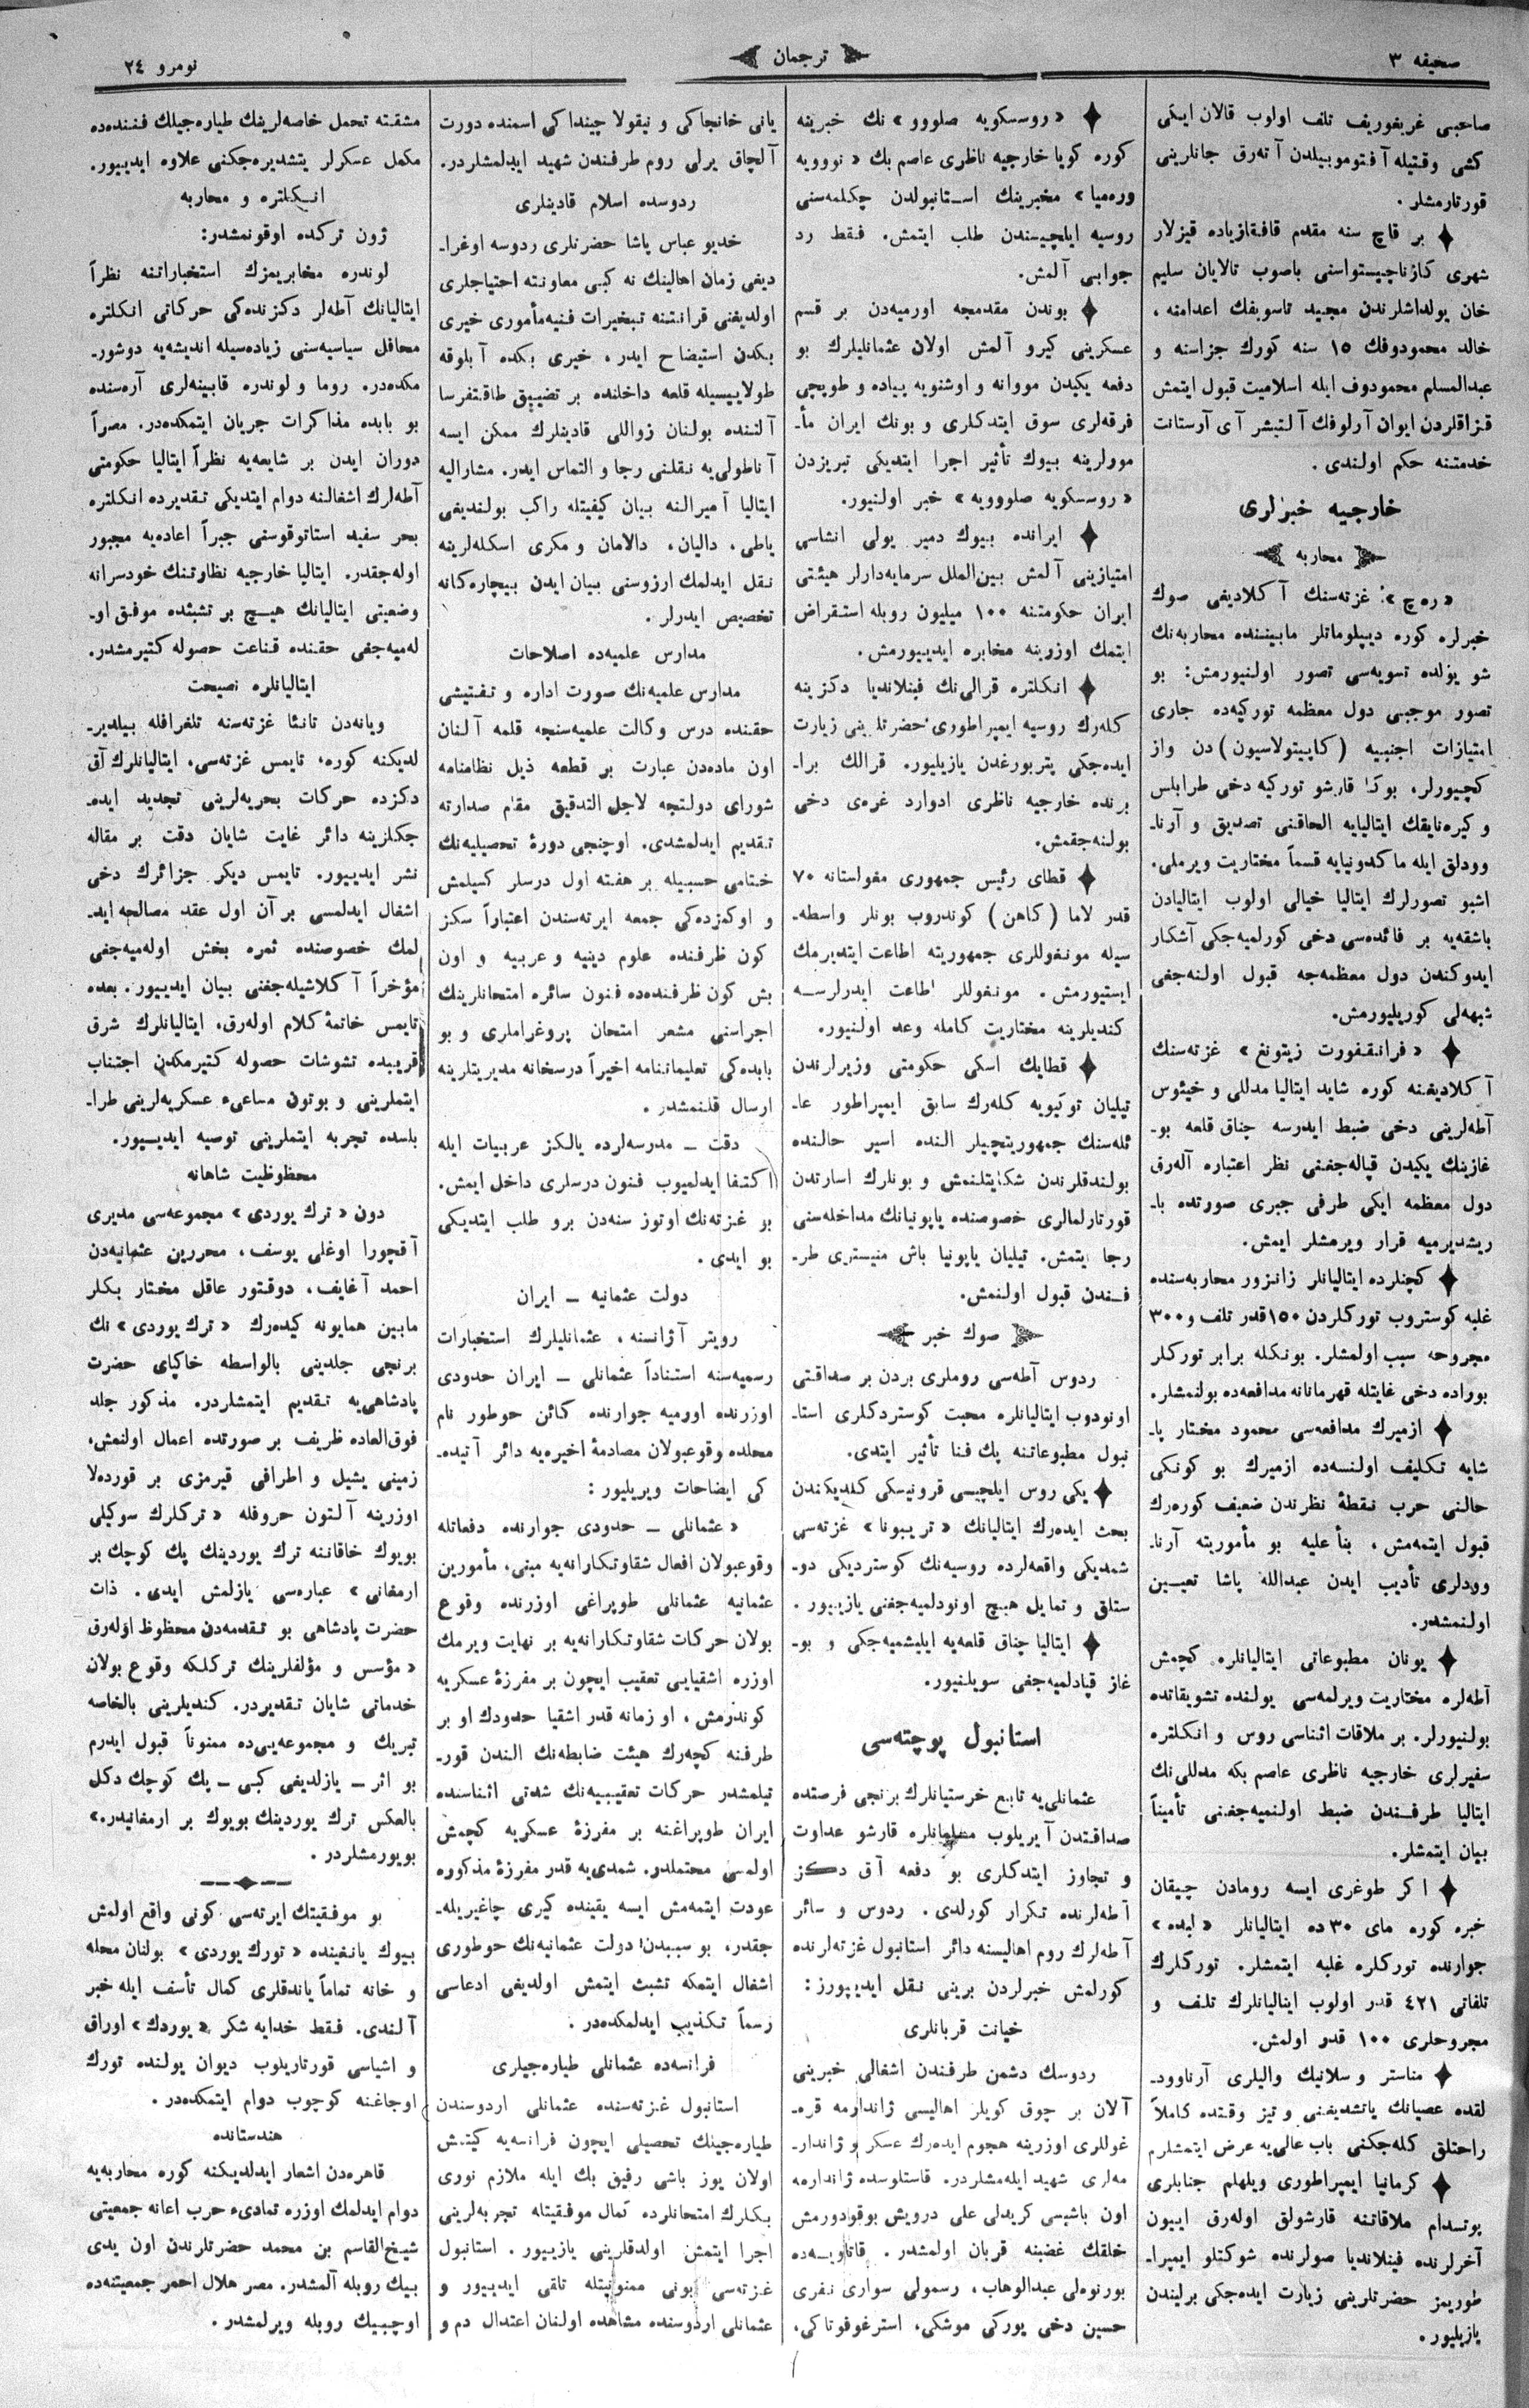 صحیفه ۳
ترجمان
نومرو ۲٤
صاحبی غریغوریف تلف اولوب قالان ایکی
کشی وقتیله آفتوموبیلدن آته‌رق جانلرینی
قورتارمشلر.
بر قاچ سنه مقدم قافقازیاده قیزلار
شهری کازناچیستواسنی باصوب تالایان سلیم
خان یولداشلرندن مجید تاسویفك اعدامنه،
خالد محمودوفك ۱٥ سنه کورك جزاسنه و
عبدالمسلم محمودوف ایله اسلامیت قبول ایتمش
قزاقلردن ایوان آرلوفك آلتیشر آی آرستانت
خدمتنه حکم اولندی.
خارجیه خبرلری
محاربه
«ره‌چ» غزته‌سنك آکلادیغی صوك
خبرلره کوره دیپلوماتلر مابیننده محاربه‌نك
شو یولده تسویه‌سی تصور اولنیورمش: بو
تصور موجبی دول معظمه تورکیه‌ده جاری
امتیازات اجنبیه (کاپیتولاسیون) دن واز
کچیورلر، بوکا قارشو تورکیه دخی طرابلس
و کیره‌نایقك ایتالیایه الحاقنی تصدیق و آرنا۔
وودلق ایله ماکدونیایه قسماً مختاریت ویرملی.
اشبو تصورلرك ایتالیا خیالی اولوب ایتالیادن
باشقه‌یه بر فائده‌سی دخی کورلمیه‌جکی آشکار
ایدوکندن دول معظمه‌جه قبول اولنه‌جغی
شبهه‌لی کوریلیورمش.
«فرانقفورت زیتونغ» غزته‌سنك
آکلادیغنه کوره شاید ایتالیا مدللی و خیئوس
آطه‌لرینی دخی ضبط ایدرسه چناق قلعه بو۔
غازینك یکیدن قپاله‌جغنی نظر اعتباره آله‌رق
دول معظمه ایکی طرفی جبری صورتده با۔
ریشدیرمیه قرار ویرمشلر ایمش.
کچنلرده ایتالیانلر زانزور محاربه‌سنده
غلبه کوستروب تورکلردن ۱٥۰ قدر تلف و ۳۰۰
مجروحه سبب اولمشلر. بونکله برابر تورکلر
بوراده دخی غایتله قهرمانانه مدافعه‌ده بولنمشلر.
ازمیرك مدافعه‌سی محمود مختار پا۔
شایه تکلیف اولنسه‌ده ازمیرك بو کونکی
حالنی حرب نقطهٔ نظرندن ضعیف کوره‌رك
قبول ایتمه‌مش، بنأ علیه بو مأموریته آرنا۔
وودلری تأدیب ایدن عبدالله پاشا تعیین
اولنمشدر.
یونان مطبوعاتی ایتالیانلره کچمش
آطه‌لره مختاریت ویرلمه‌سی یولنده تشویقاتده
بولنیورلر. بر ملاقات اثناسی روس و انکلتره
سفیرلری خارجیه ناظری عاصم بکه مدللی‌نك
ایتالیا طرفندن ضبط اولنمیه‌جغنی تأمیناً
بیان ایتمشلر.
اکر طوغری ایسه رومادن چیقان
خبره کوره مای ۳۰ ده ایتالیانلر «لبده»
جوارنده تورکلره غلبه ایتمشلر. تورکلرك
تلفاتی ٤۲۱ قدر اولوب ایتالیانلرك تلف و
مجروحلری ۱۰۰ قدر اولمش.
مناستر و سلانیك والیلری آرناوود۔
لقده عصیانك یاتشدیغنی و تیز وقتده کاملاً
راحتلق کله‌جکنی باب عالی‌یه عرض ایتمشلر.
کرمانیا ایمپراطوری ویلهلم جنابلری
پوتسدام ملاقاتنه قارشولق اوله‌رق اییون
آخرلرنده فینلاندیا صولرنده شوکتلو ایمپرا۔
طوریمز حضرتلرینی زیارت ایده‌جکی برلیندن
یازیلیور.
«روسسکویه صلووو» نك خبرینه
کوره کویا خارجیه ناظری عاصم بك «نوویه
وره‌میا» مخبرینك استانبولدن چکلمه‌سنی
روسیه ایلچیسندن طلب ایتمش. فقط رد
جوابی آلمش.
بوندن مقدمجه اورمیه‌دن بر قسم
عسکرینی کیرو آلمش اولان عثمانلیلرك بو
دفعه یکیدن مووانه و اوشنویه پیاده و طوپچی
فرقه‌لری سوق ایتدکلری و بونك ایران مأ۔
مورلرینه بیوك تأثیر اجرا ایتدیکی تبریزدن
«روسسکویه صلووویه» خبر اولنیور.
ایرانده بیوك دمیر یولی انشاسی
امتیازینی آلمش بین‌الملل سرمایه‌دارلر هیئتی
ایران حکومتنه ۱۰۰ میلیون روبله استقراض
ایتمك اوزرینه مخابره ایدیبورمش.
انکلتره قرالی‌نك فینلاندیا دکزینه
کله‌رك روسیه ایمپراطوری حضرتلرینی زیارت
ایده‌جکی پتربورغدن یازیلیور. قرالك برا۔
برنده خارجیه ناظری ادوارد غره‌ی دخی
بولنه‌جقمش.
قطای رئیس جمهوری مغولستانه ۷۰
قدر لاما (کاهن) کوندروب بونلر واسطه۔
سیله مونغوللری جمهوریته اطاعت ایتدیرمك
ایستیورمش. مونغوللر اطاعت ایدرلرسه
کندیلرینه مختاریت کامله وعد اولنیور.
قطایك اسکی حکومتی وزیرلرندن
تیلیان توکیویه کله‌رك سابق ایمپراطور عا۔
ئله‌سنك جمهوریتچیلر النده اسیر حالنده
بولندقلرندن شکایتلنمش و بونلرك اسارتدن
قورتارلمالری خصوصنده یاپونیانك مداخله‌سنی
رجا ایتمش. تیلیان یاپونیا باش منیستری طر۔
فندن قبول اولنمش.
صوك خبر
ردوس آطه‌سی روملری بردن بر صداقتی
اونودوب ایتالیانلره محبت کوستردکلری استا۔
نبول مطبوعاتنه پك فنا تأثیر ایتدی.
یکی روس ایلچیسی قرونیسکی کلدیکندن
بحث ایده‌رك ایتالیانك «تریبونا» غزته‌سی
شمدیکی واقعه‌لرده روسیه‌نك کوستردیکی دو۔
ستلق و تمایل هیچ اونودلمیه‌جغنی یازیبور.
ایتالیا چناق قلعه‌یه ایلیشمیه‌جکی و بو۔
غاز قپادلمیه‌جغی سویلنیور.
استانبول پوچته‌سی
عثمانلی‌یه تابع خرستیانلرك برنجی فرصتده
صداقتدن آیریلوب مسلمانلره قارشو عداوت
و تجاوز ایتدکلری بو دفعه آق دکز
آطه‌لرنده تکرار کورلدی. ردوس و سائر
آطه‌لرك روم اهالیسنه دائر استانبول غزته‌لرنده
کورلمش خبرلردن برینی نقل ایدیبورز:
خیانت قربانلری
ردوسك دشمن طرفندن اشغالی خبرینی
آلان بر چوق کویلر اهالیسی ژاندارمه قره۔
غوللری اوزرینه هجوم ایده‌رك عسکر و ژاندار۔
مه‌لری شهید ایله‌مشلردر. قاستلوسده ژاندارمه
اون باشیسی کریدلی علی درویش بوقودورمش
خلقك غضبنه قربان اولمشدر.
بورنوه‌لی عبدالوهاب، رسمولی سواری نفری
حسین دخی یورکی موشکی، استرغوفوتاکی،
یانی خانجاکی و نیقولا چینداکی اسمنده دورت
آلچاق یرلی روم طرفندن شهید ایدلمشلردر.
ردوسده اسلام قادینلری
خدیو عباس پاشا حضرتلری ردوسه اوغرا۔
دیغی زمان اهالینك نه کبی معاونته احتیاجلری
اولدیغنی قرانتنه تبخیرات فنیه‌مأموری خیری
بکدن استیضاح ایدر، خیری بکده آبلوقه
طولاییسیله قلعه داخلنده بر تضییق طاقتفرسا
آلتنده بولنان زواللی قادینلرك ممکن ایسه
آناطولی‌یه نقلنی رجا و التماس ایدر. مشارالیه
ایتالیا آمیرالنه بیان کیفیتله راکب بولندیغی
یاطی، دالیان، دالامان و مکری اسکله‌لرینه
نقل ایدلمك ارزوسنی بیان ایدن بیچاره‌کانه
تخصیص ایدرلر.
مدارس علمیه‌ده اصلاحات
مدارس علمیه‌نك صورت اداره و تفتیشی
حقنده درس وکالت علمیه‌سنجه قلمه آلنان
اون ماده‌دن عبارت بر قطعه ذیل نظامنامه
شورای دولتجه لاجل التدقیق مقام صدارته
تقدیم ایدلمشدی. اوچنجی دورهٔ تحصیلیه‌نك
ختامی حسبیله بر هفته اول درسلر کسیلمش
و اوکمزده‌کی جمعه ایرته‌سندن اعتباراً سکز
کون ظرفنده علوم دینیه و عربیه و اون
بش کون ظرفنده‌ده فنون سائره امتحانلرینك
اجراسنی مشعر امتحان پروغراملری و بو
بابده‌کی تعلیماتنامه اخیراً درسخانه مدیریتلرینه
ارسال قلنمشدر.
دقت ــ مدرسه‌لرده یالکز عربیات ایله
اکتفا ایدلمیوب فنون درسلری داخل ایمش.
بو غزته‌نك اوتوز سنه‌دن برو طلب ایتدیکی
بو ایدی.
دولت عثمانیه ــ ایران
رویتر آژانسنه، عثمانلیلرك استخبارات
رسمیه‌سنه استناداً عثمانلی ــ ایران حدودی
اوزرنده اورمیه جوارنده کائن حوطور نام
محلده وقوعبولان مصادمهٔ اخیره‌یه دائر آتیده۔
کی ایضاحات ویریلیور:
«عثمانلی ــ حدودی جوارنده دفعاتله
وقوعبولان افعال شقاوتکارانه‌یه مبنی، مأمورین
عثمانیه عثمانلی طوپراغی اوزرنده وقوع
بولان حرکات شقاوتکارانه‌یه بر نهایت ویرمك
اوزره اشقیایی تعقیب ایچون بر مفرزهٔ عسکریه
کوندرمش، او زمانه قدر اشقیا حدودك او بر
طرفنه کچه‌رك هیئت ضابطه‌نك الندن قور۔
تیلمشدر حرکات تعقیبیه‌نك شدتی اثناسنده
ایران طوپراغنه بر مفرزهٔ عسکریه کچمش
اولمسی محتملدر. شمدی‌یه قدر مفرزهٔ مذکوره
عودت ایتمه‌مش ایسه یقینده کیری چاغیریله۔
جقدر، بو سببدن دولت عثمانیه‌نك حوطوری
اشغال ایتمکه تشبث ایتمش اولدیغی ادعاسی
رسماً تکذیب ایدلمکده‌در.
فرانسه‌ده عثمانلی طیاره‌جیلری
استانبول غزته‌سنده عثمانلی اردوسندن
طیاره‌جینك تحصیلی ایچون فرانسه‌یه کیتمش
اولان یوز باشی رفیق بك ایله ملازم نوری
بکلرك امتحانلرده کمال موفقیتله تجربه‌لرینی
اجرا ایتمش اولدقلرینی یازیبور. استانبول
غزته‌سی بونی ممنونیتله تلقی ایدیبور و
عثمانلی اردوسنده مشاهده اولنان اعتدال دم و
مشقته تحمل خاصه‌لرینك طیاره‌جیلك فننده‌ده
مکمل عسکرلر یتشدیره‌جکنی علاوه ایدیبور.
انکلتره و محاربه
ژون ترکده اوقونمشدر:
لوندره مخابریمزك استخباراتنه نظراً
ایتالیانك آطه‌لر دکزنده‌کی حرکاتی انکلتره
محافل سیاسیه‌سنی زیاده‌سیله اندیشه‌یه دوشور۔
مکده‌در. روما و لوندره قابینه‌لری آره‌سنده
بو بابده مذاکرات جریان ایتمکده‌در. مصراً
دوران ایدن بر شایعه‌یه نظراً ایتالیا حکومتی
آطه‌لرك اشغالنه دوام ایتدیکی تقدیرده انکلتره
بحر سفید استاتوقوسنی جبراً اعاده‌یه مجبور
اوله‌جقدر. ایتالیا خارجیه نظارتنك خودسرانه
وضعیتی ایتالیانك هیچ بر تشبثده موفق او۔
له‌میه‌جغی حقنده قناعت حصوله کتیرمشدر.
ایتالیانلره نصیحت
ویانه‌دن تانئا غزته‌سنه تلغرافله بیلدیر۔
لدیکنه کوره، تایمس غزته‌سی، ایتالیانلرك آق
دکزده حرکات بحریه‌لرینی تجدید ایده۔
جکلرینه دائر غایت شایان دقت بر مقاله
نشر ایدیبور. تایمس دیکر جزائرك دخی
اشغال ایدلمسی بر آن اول عقد مصالحه اید۔
لمك خصوصنده ثمره بخش اوله‌میه‌جغی
مؤخراً آکلاشیله‌جغنی بیان ایدیبور. بعده
تایمس خاتمهٔ کلام اوله‌رق، ایتالیانلرك شرق
قریبده تشوشات حصوله کتیرمکدن اجتناب
ایتملرینی و بوتون مساعیء عسکریه‌لرینی طرا۔
بلسده تجربه ایتملرینی توصیه ایدیبور.
محظوظیت شاهانه
دون «ترك یوردی» مجموعه‌سی مدیری
آقچورا اوغلی یوسف، محررین عثمانیه‌دن
احمد آغایف، دوقتور عاقل مختار بکلر
مابین همایونه کیده‌رك «ترك یوردی» نك
برنجی جلدینی بالواسطه خاکپای حضرت
پادشاهی‌یه تقدیم ایتمشلردر. مذکور جلد
فوق‌العاده ظریف بر صورتده اعمال اولنمش،
زمینی یشیل و اطرافی قیرمزی بر قورده‌لا
اوزرینه آلتون حروفله «ترکلرك سوکیلی
بویوك خاقاننه ترك یوردینك پك کوچك بر
ارمغانی» عباره‌سی یازلمش ایدی. ذات
حضرت پادشاهی بو تقدمه‌دن محظوظ اوله‌رق
«مؤسس و مؤلفلرینك ترکلکه وقوع بولان
خدماتی شایان تقدیردر. کندیلرینی بالخاصه
تبریك و مجموعه‌یی‌ده ممنوناً قبول ایدرم
بو اثر ــ یازلدیغی کبی ــ پك کوچك دکل
بالعکس ترك یوردینك بویوك بر ارمغانیدر.»
بویورمشلردر.
بو موفقیتك ایرته‌سی کونی واقع اولمش
بیوك یانغینده «تورك یوردی» بولنان محله
و خانه تماماً یاندقلری کمال تأسف ایله خبر
آلندی. فقط خدایه شکر «یوردك» اوراق
و اشیاسی قورتاریلوب دیوان یولنده تورك
اوجاغنه کوچوب دوام ایتمکده‌در.
هندستانده
قاهره‌دن اشعار ایدلدیکنه کوره محاربه‌یه
دوام ایدلمك اوزره تمادیء حرب اعانه جمعیتی
شیخ‌القاسم بن محمد حضرتلرندن اون یدی
بیك روبله آلمشدر. مصر هلال احمر جمعیتنه‌ده
اوچبیك روبله ویرلمشدر.